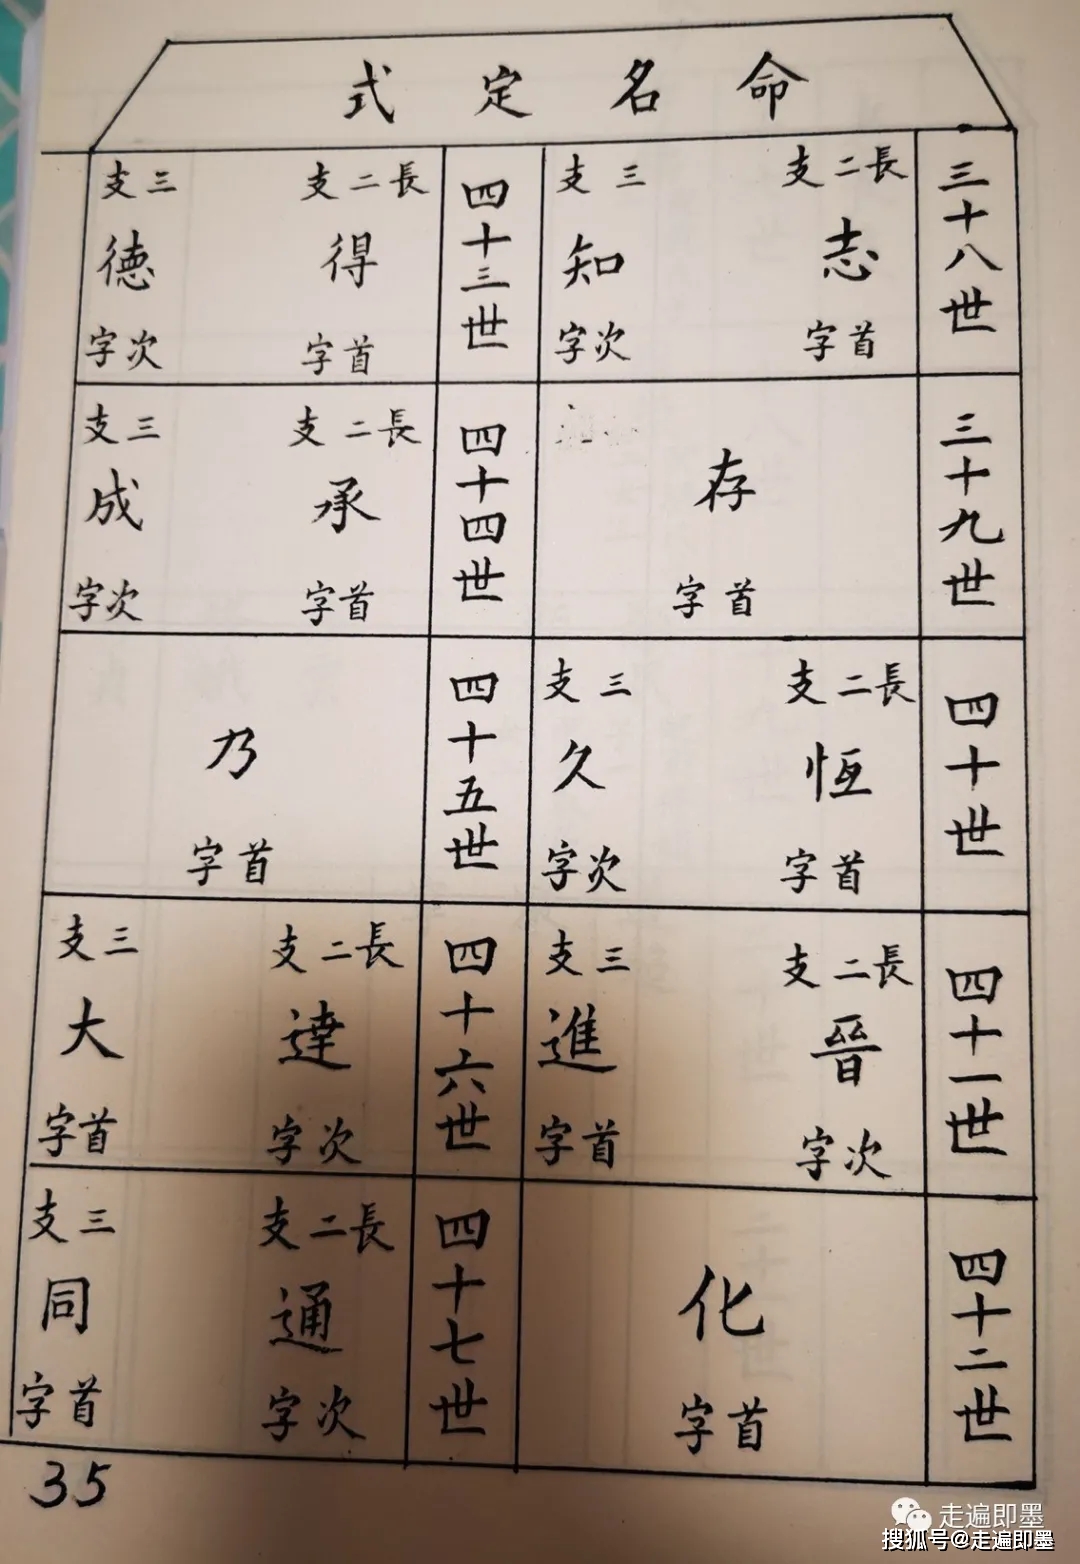 命名定式
三十八世
長二支 志 首字
三支 知 次字
三十九世
存 首字
四十世
長二支 恆 首字
三支 久 次字
四十一世
長二支 晉 次字
三支 進 首字
四十二世
化 首字
四十三世
長二支 得 首字
三支 德 次字
四十四世
長二支 承 首字
三支 成 次字
四十五世
乃 首字
四十六世
長二支 達 次字
三支 大 首字
四十七世
長二支 通 次字
三支 同 首字
35
走遍即墨
搜狐号@走遍即墨